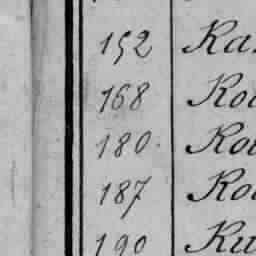 152 Ka
168 Ko
180. Ko
187 Ko
190 Ku